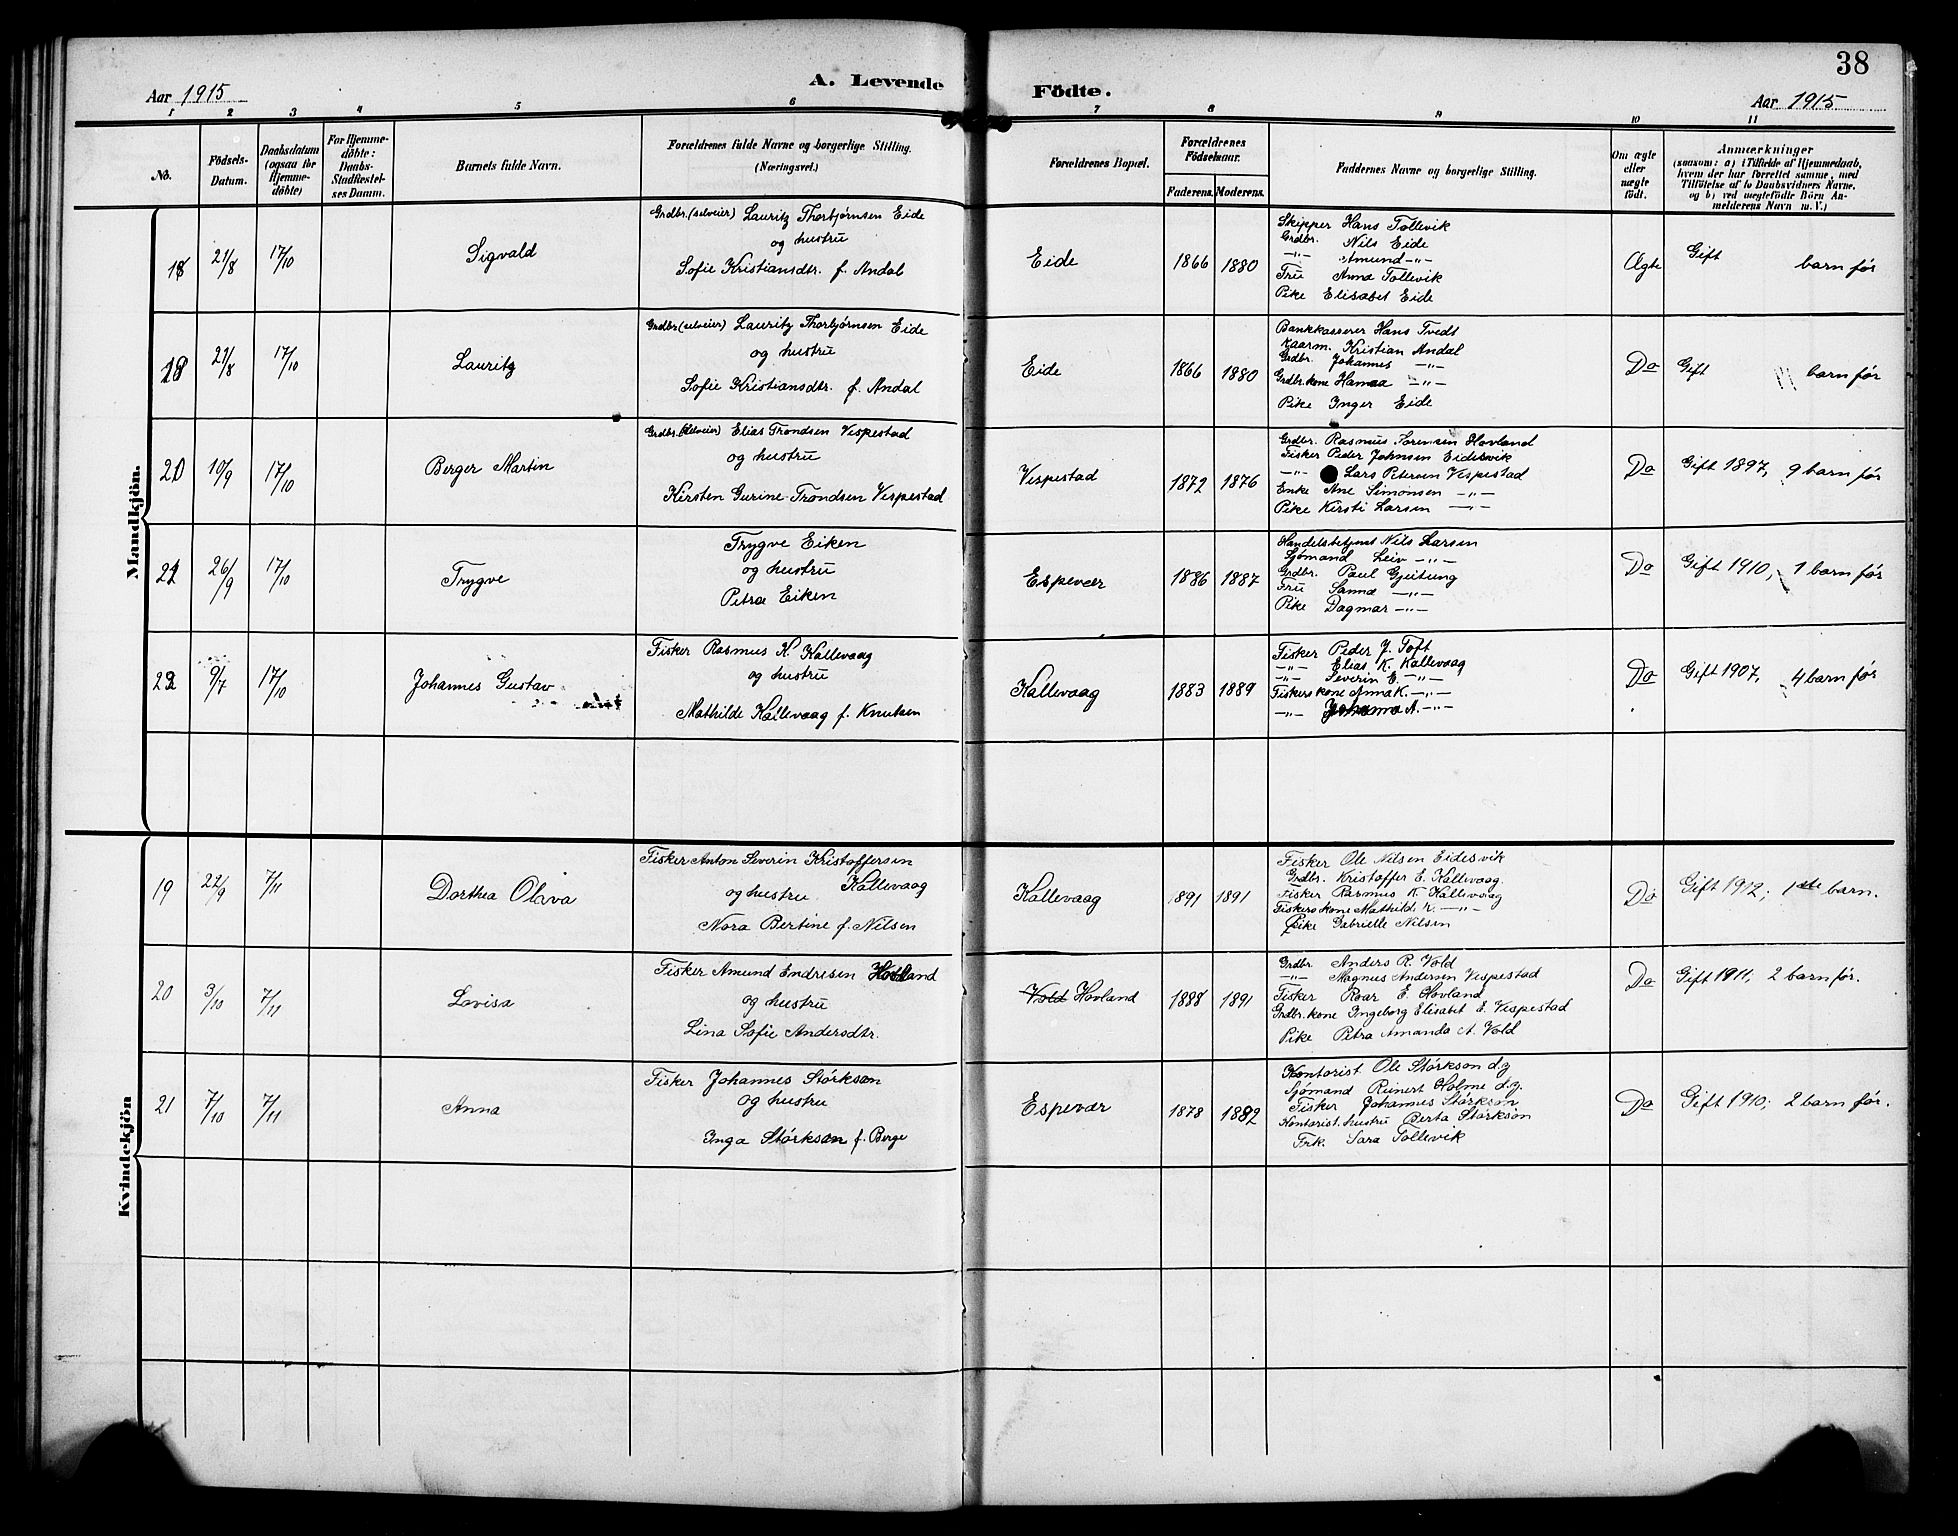 38
Aar 1915
A. Levende
Födte.
Aar 1915
1 2 3 4 5 6 7 8 9 10 11
No.
Födsels-
Datum.
Daabsdatum
(ogsaa for
Hjemme-
döbte)
For Hjemme-
döbte:
Daabs-
Stadfæstel-
ses Datum.
Barnets fulde Navn.
Forældrenes fulde Navne og borgerlige Stilling.
(Næringsvei.)
Forældrenes Bopæl.
Forældrenes
Födselsaar.
Faderens. Moderens.
Faddernes Navne og borgerlige Stilling.
Om ægte
eller
uægte
födt.
Anmærkninger
(saasom: a) i Tilfælde af Hjemmedaab,
hvem der har forrettet samme, med
Tilföielse af to Daabsvidners Navne.
og b) ved uægtefödte Börn An-
melderens Navn m. V.)
Mandkjön.
18 21/8 17/10
Sigvald
Grdbr. (selveier) Lauritz Thorbjørnsen Eide
og hustru
Sofie Kristiansdtr. f. Andal
Eide 1866 1880
Skipper Hans Tollevik
Grdbr. Nils Eide
—"— Amund —"—
Fru Anna Tollevik
Pike Elisabet Eide
Ægte
Gift barn før
21/8 17/10
Lauritz
Grdbr. (selveier) Lauritz Thorbjørnsen Eide
og hustru
Sofie Kristiansdtr. f. Andal
Eide 1866 1880
Bankkasserer Hans Tvedt
Kaarm. Kristian Andal
Grdbr. Johannes —"—
Grdbr. kone Hanna —"—
Pike Inger Eide
Do
Gift barn før
20 10/9 17/10
Berger Martin
Grdbr. (selveier) Elias Trondsen Vespestad
og hustru
Kirsten Gurine Trondsen Vespestad
Vespestad 1872 1876
Grdbr. Rasmus Sørensen Hovland
Fisker Peder Johnsen Eidesvik
—"— Lars Petersen Vespestad
Enke Ane Simonsen —"—
Pike Kirsti Larsen —"—
Do
Gift 1897, 9 barn før
21 26/9 17/10
Trygve
Trygve Eiken
og hustru
Petra Eiken
Espevær 1886 1887
Handelsbetjent Nils Larsen
Sjømand Leiv —"—
Grdbr. Paul Gjeitung
Fru Sanna —"—
Pike Dagmar —"—
Do
Gift 1910, 1 barn før
22 9/7 17/10
Johannes Gustav
Fisker Rasmus K. Kallevaag
og hustru
Mathilde Kallevaag f. Knutsen
Kallevaag 1883 1889
Fisker Peder J. Toft
—"— Elias K. Kallevaag
—"— Severin E. —"—
Fiskers kone Anna K. —"—
—"— Johanna A. —"—
Do
Gift 1907, 4 barn før
Kvindekjön
19 22/9 7/11
Dorthea Olava
Fisker Anton Severin Kristoffersen
og hustru Kallevaag
Nora Bertine f. Nilsen
Kallevaag 1891 1891
Fisker Ole Nilsen Eidesvik
Grdbr. Kristoffer E. Kallevaag
Fisker Rasmus K. Kallevaag
Fiskers kone Mathilde K. —"—
Pike Gabrielle Nilsen
Do
Gift 1912; 1ste barn.
20 3/10 7/11
Lovisa
Fisker Amund Endresen Hovland
og hustru
Lina Sofie Andersdtr.
Vold Hovland 1888 1891
Grdbr. Anders R. Vold
—"— Magnus Andersen Vespestad
Fisker Roar E. Hovland
Grdbr. kone Ingeborg Elisabet E. Vespestad
Pike Petra Amanda A. Vold
Do
Gift 1911, 2 barn før.
21 7/10 7/11
Anna
Fisker Johannes Størkson
og hustru
Inga Størkson f. Berge
Espevær 1878 1882
Kontorist Ole Størkson d.y
Sjømand Reinert Holme d.y.
Fisker Johannes Størkson
Kontorist. hustru Berta Størkson
Frk. Sara Tollevik
Do
Gift 1910; 2 barn før.